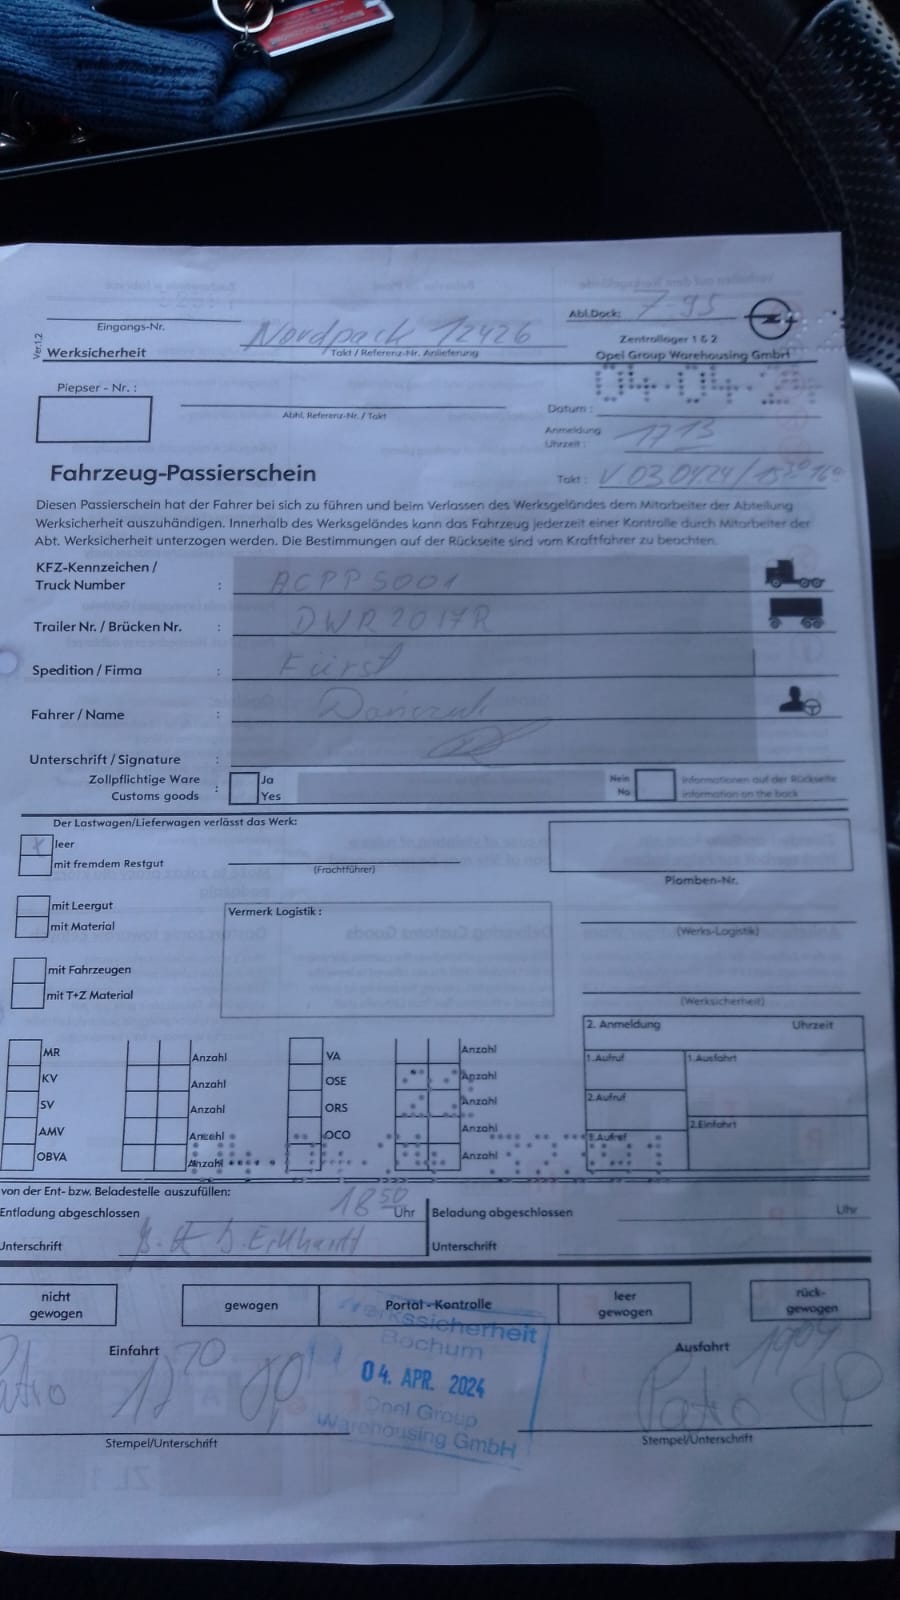 Abl.Dock: 7-95
Eingangs-Nr.
Nordpack 12426
Zentrallager 1 & 2
Ver.1.2
Werksicherheit
Takt / Referenz-Nr. Anlieferung
Opel Group Warehousing GmbH
Piepser - Nr. :
04.04.
Datum :
Abhl. Referenz-Nr. / Takt
Anmeldung
Uhrzeit : 1713
Fahrzeug-Passierschein
Takt : V 030424/
Diesen Passierschein hat der Fahrer bei sich zu führen und beim Verlassen des Werksgeländes dem Mitarbeiter der Abteilung
Werksicherheit auszuhändigen. Innerhalb des Werksgeländes kann das Fahrzeug jederzeit einer Kontrolle durch Mitarbeiter der
Abt. Werksicherheit unterzogen werden. Die Bestimmungen auf der Rückseite sind vom Kraftfahrer zu beachten.
KFZ-Kennzeichen /
Truck Number : ACPP5001
Trailer Nr. / Brücken Nr. : DWR2017R
Spedition / Firma : Fürst
Fahrer / Name :
Unterschrift / Signature :
Zollpflichtige Ware
Customs goods :
Ja
Yes
Nein
No
Informationen auf der Rückseite
information on the back
Der Lastwagen/Lieferwagen verlässt das Werk:
x leer
mit fremdem Restgut
(Frachtführer)
Plomben-Nr.
mit Leergut
mit Material
Vermerk Logistik :
(Werks-Logistik)
mit Fahrzeugen
mit T+Z Material
(Werksicherheit)
2. Anmeldung Uhrzeit
MR Anzahl VA Anzahl
1.Aufruf 1.Ausfahrt
KV Anzahl OSE Anzahl
SV Anzahl ORS Anzahl
2.Aufruf
AMV Anzahl OCO Anzahl
2.Einfahrt
3.Aufruf
OBVA Anzahl Anzahl
von der Ent- bzw. Beladestelle auszufüllen:
Entladung abgeschlossen 18 50 Uhr
Beladung abgeschlossen Uhr
Unterschrift
Unterschrift
nicht
gewogen
gewogen
Portal - Kontrolle
leer
gewogen
rück-
gewogen
Werkssicherheit
Bochum
04. APR. 2024
Opel Group
Warehousing GmbH
Einfahrt
Ausfahrt
Stempel/Unterschrift
Stempel/Unterschrift